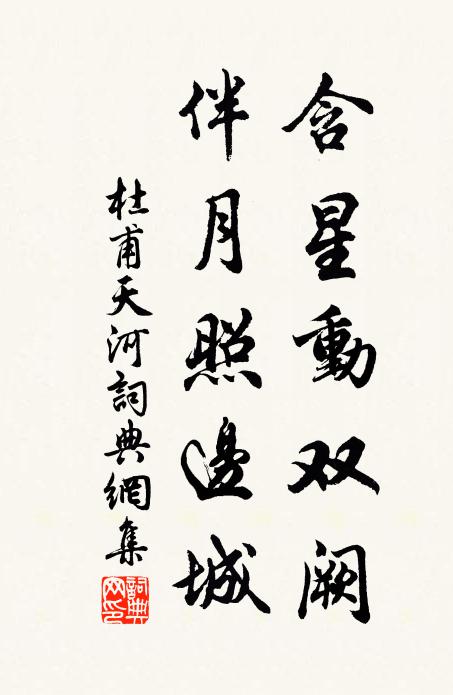 含星動双阙
伴月照邊城
杜甫天河詞典網集
詞典网印